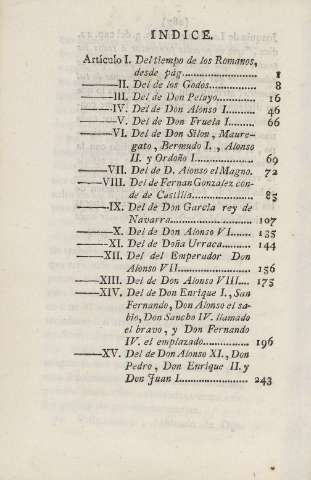 INDICE.
Articulo I. Del tiempo de los Romanos,
desde pág..................... 1
———II. Del de los Godos............ 8
———III. Del de Don Pelayo.......... 16
———IV. Del de Don Alonso I......... 46
———V. Del de Don Fruela I.......... 66
———VI. Del de Don Silon, Maure-
gato, Bermudo I., Alonso
II. y Ordoño I................ 69
———VII. Del de D. Alonso el Magno. 72
———VIII. Del de Fernan Gonzalez con-
de de Castilla................ 85
———IX. Del de Don García rey de
Navarra...................... 107
———X. Del de Don Alonso VI...... 135
———XI. Del de Doña Urraca...... 144
———XII. Del del Emperador Don
Alonso VII................... 156
———XIII. Del de Don Alonso VIII.... 175
———XIV. Del de Don Enrique I., San
Fernando, Don Alonso el sa-
bio, Don Sancho IV. llamado
el bravo, y Don Fernando
IV. el emplazado............. 196
———XV. Del de Don Alonso XI., Don
Pedro, Don Enrique II. y
Don Juan I................... 243